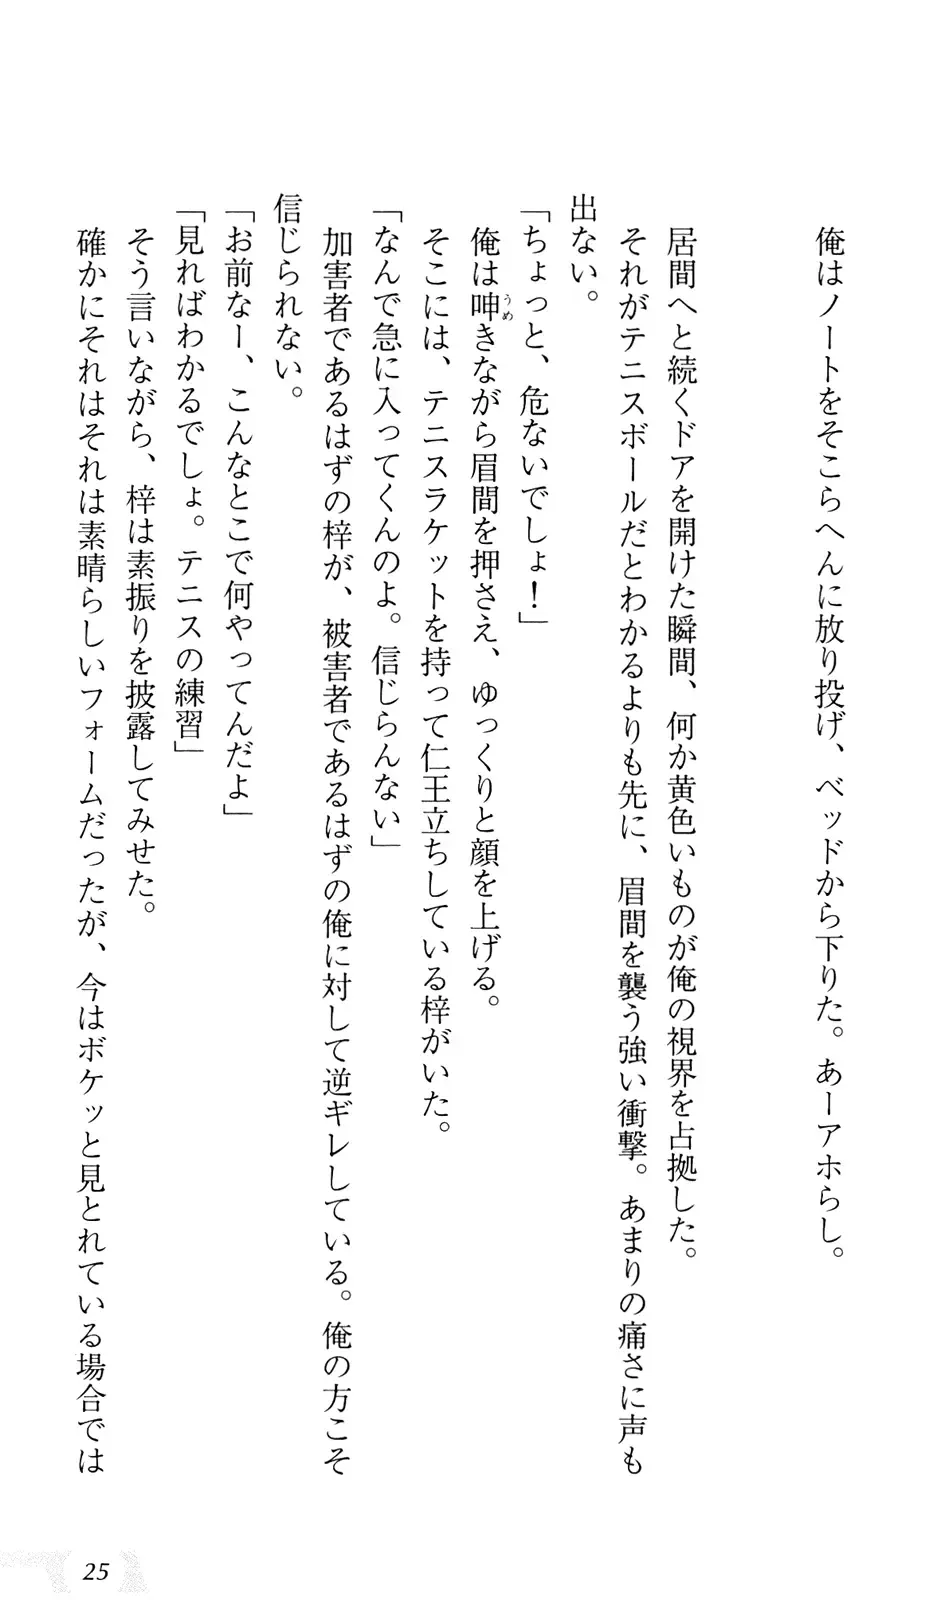 俺はノートをそこらへんに放り投げ、ベッドから下りた。あーアホらし。
居間へと続くドアを開けた瞬間、何か黄色いものが俺の視界を占拠した。
それがテニスボールだとわかるよりも先に、眉間を襲う強い衝撃。あまりの痛さに声も
出ない。
「ちょっと、危ないでしょ！」
俺は呻きながら眉間を押さえ、ゆっくりと顔を上げる。
うめ
そこには、テニスラケットを持って仁王立ちしている梓がいた。
「なんで急に入ってくんのよ。信じらんない」
加害者であるはずの梓が、被害者であるはずの俺に対して逆ギレしている。俺の方こそ
信じられない。
「お前なー、こんなとこで何やってんだよ」
「見ればわかるでしょ。テニスの練習」
そう言いながら、梓は素振りを披露してみせた。
確かにそれはそれは素晴らしいフォームだったが、今はボケッと見とれている場合では
25